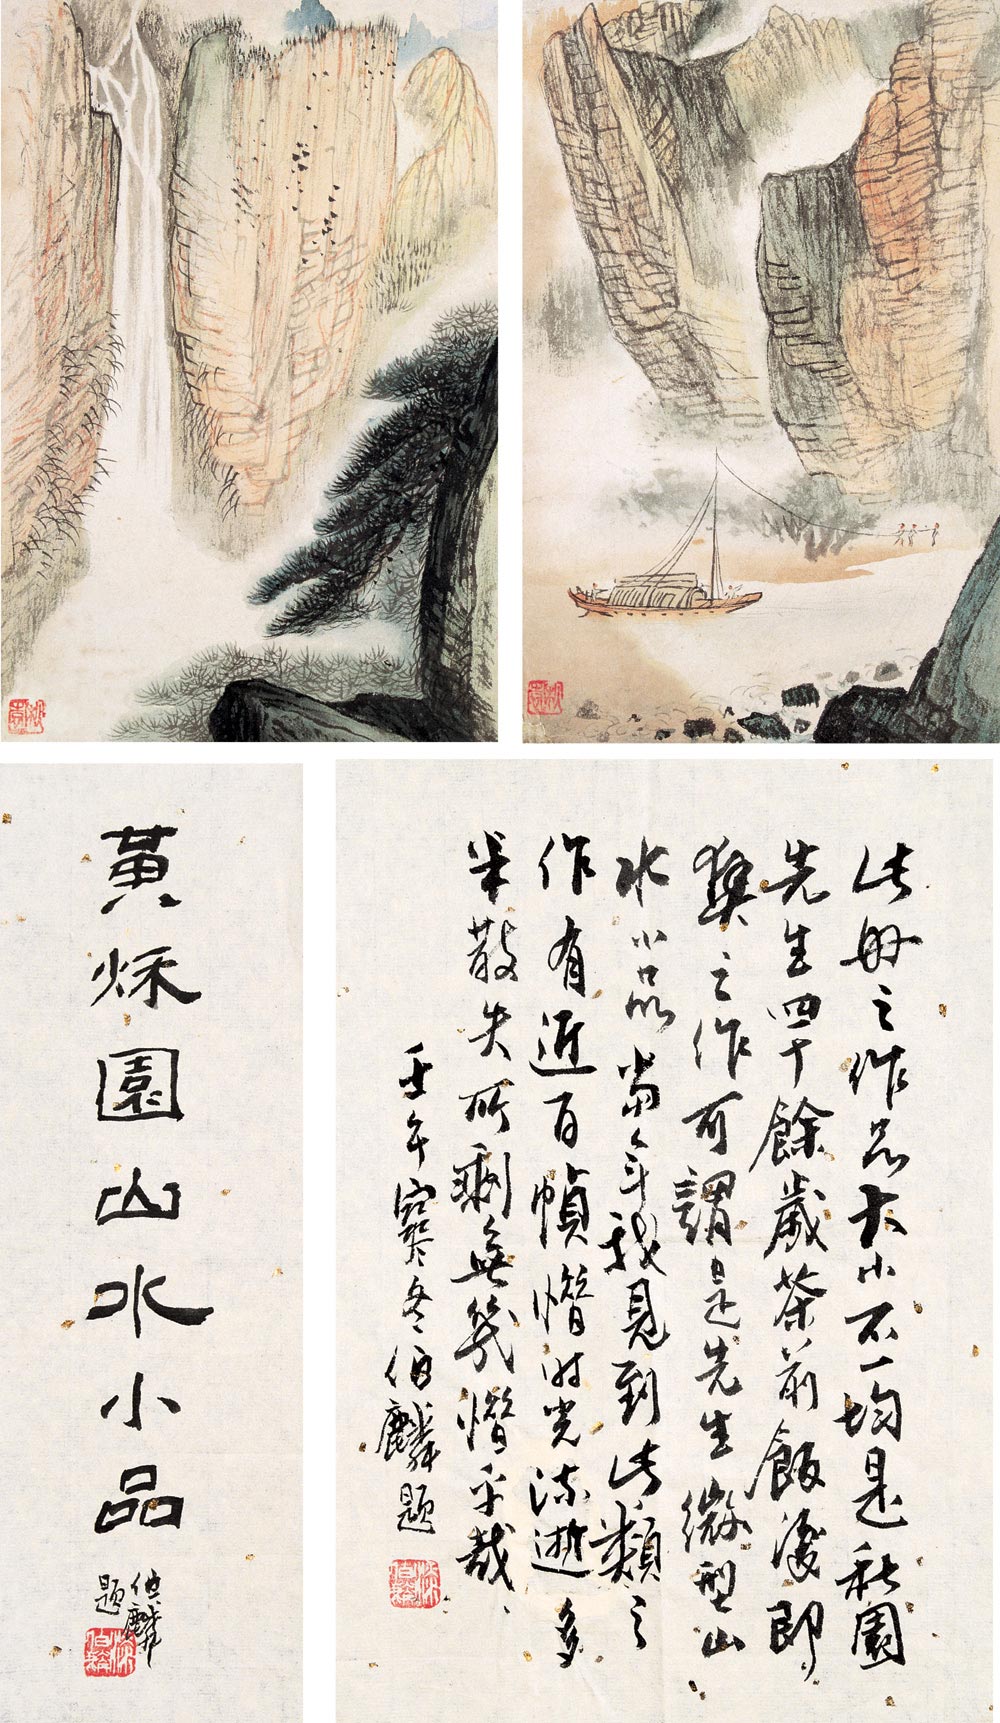 黄秌園山水小品
伯麟
题
此册之作品大小不一均是秋園
先生四十餘歲茶前飯後即
興之作可謂是先生微型山
水小品當年我見到此類之
作有近百幀惜时光流逝多
半散失所剩無幾惜乎哉
壬午寒冬伯麟题